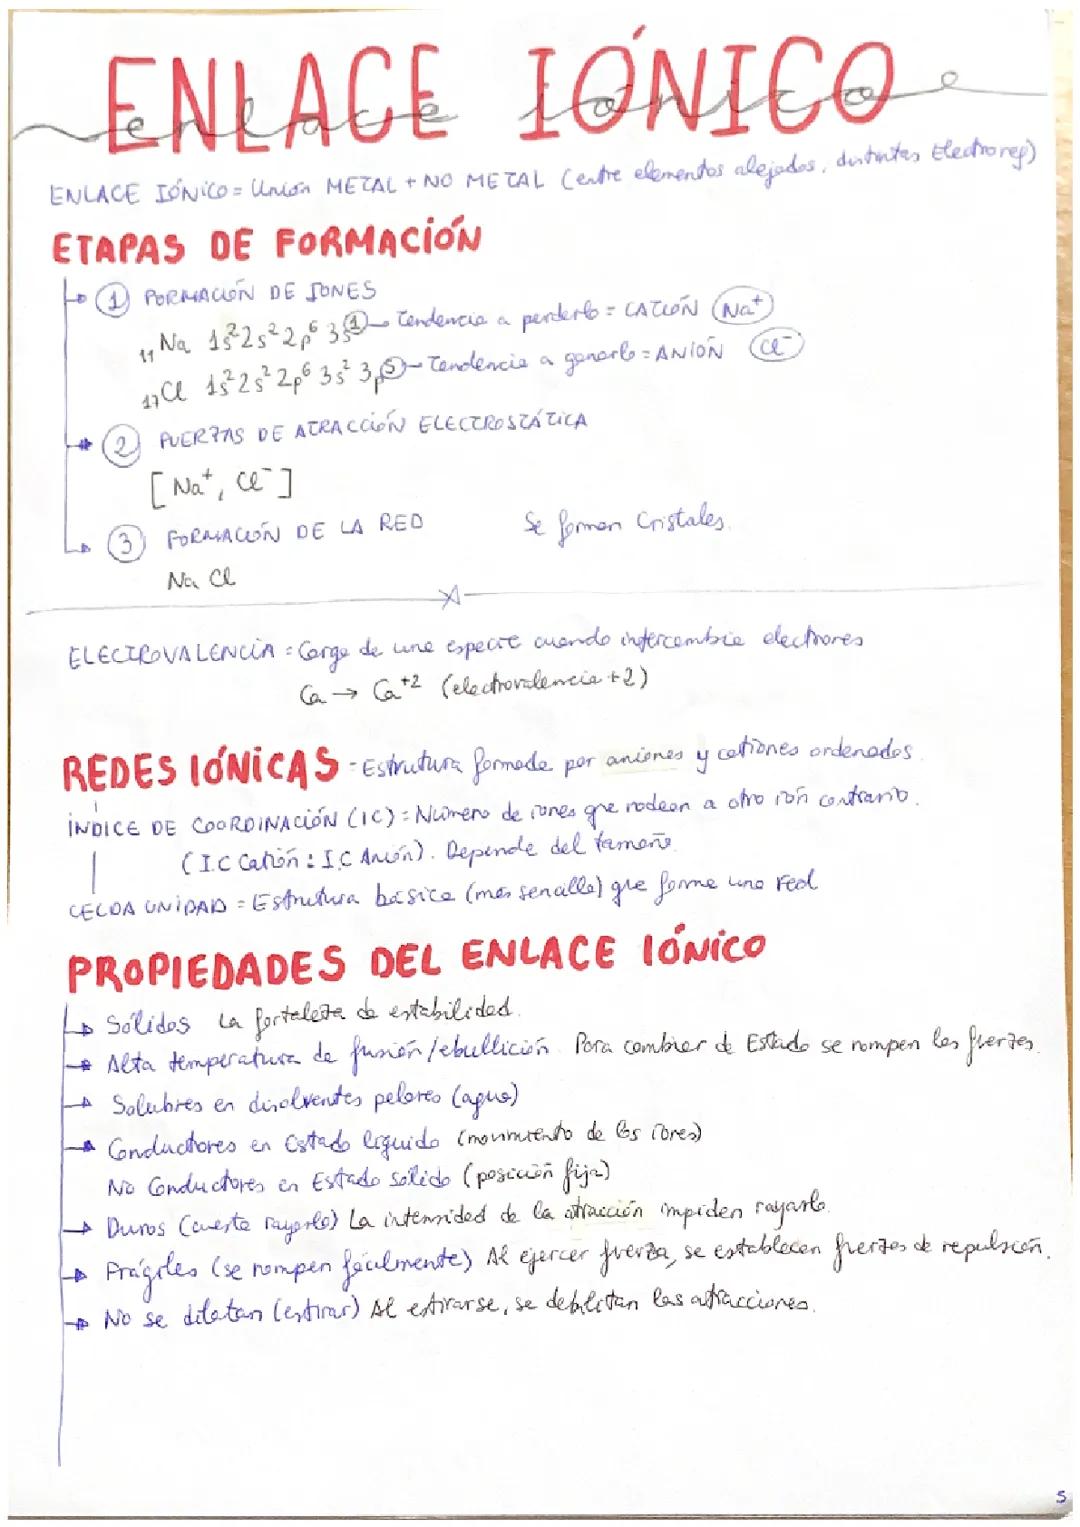 ENLACE IÓNICO
enlace iónico
ENLACE IÓNICO = Unión METAL + NO METAL (entre elementos alejados, distintas Electroneg)
ETAPAS DE FORMACIÓN
1 FORMACIÓN DE IONES
₁₁Na 1s² 2s² 2p⁶ 3s¹ Tendencia a perderlo = CATIÓN Na⁺
₁₇Cl 1s² 2s² 2p⁶ 3s² 3p⁵ - Tendencia a ganarlo = ANIÓN Cl⁻
2 FUERZAS DE ATRACCIÓN ELECTROSTÁTICA
[Na⁺, Cl⁻]
3 FORMACIÓN DE LA RED Se forman Cristales.
Na Cl
ELECTROVALENCIA = Carga de una especie cuando intercambia electrones
Ca → Ca⁺² (electrovalencia +2)
REDES IÓNICAS - Estrutura formada por aniones y cationes ordenados.
ÍNDICE DE COORDINACIÓN (IC) = Número de iones que rodean a otro ión contrario.
(I.C Catión : I.C Anión). Depende del tamaño.
CELDA UNIDAD = Estrutura básica (más sencilla) que forma una red
PROPIEDADES DEL ENLACE IÓNICO
Sólidos La fortaleza da estabilidad.
Alta temperatura de fusión/ebullición. Para cambiar de Estado se rompen las fuerzas.
Solubres en disolventes polares (agua)
Conductores en Estado líquido (movimiento de los iones)
No Conductores en Estado sólido (posición fija)
Duros (cuesta rayarlo) La intensidad de la atracción impiden rayarlo.
Frágiles (se rompen fácilmente) Al ejercer fuerza, se establecen fuerzas de repulsión.
No se dilatan (estirar) Al estirarse, se debilitan las atracciones.
5